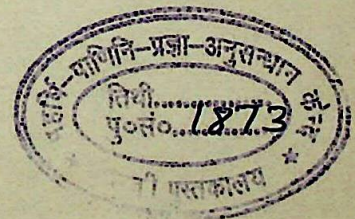 महर्षि-पाणिनि-प्रज्ञा-अनुसन्धान केन्द्र
तिथी..................
पु०सं०...1873
पुस्तकालय